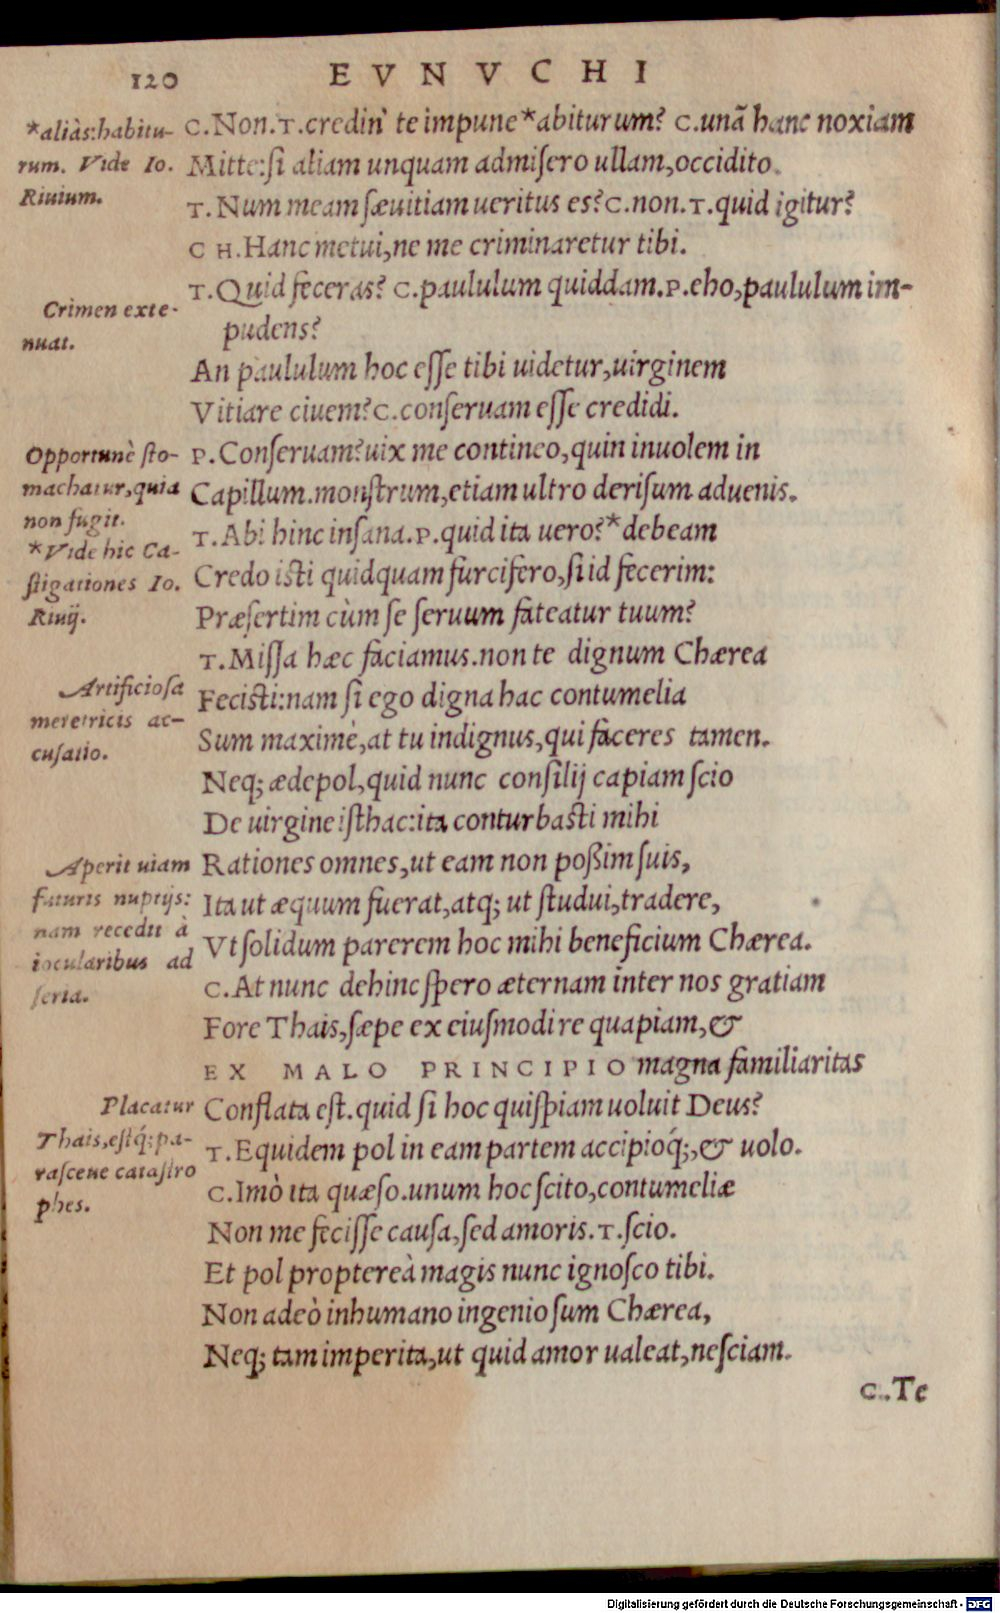 120 EVNVCHI
*aliàs:habitu-
rum. Vide Io.
Riuium.
C.Non.T.credin' te impune*abiturum? C.unā hanc noxiam
Mitte:ſi aliam unquam admiſero ullam,occidito.
T.Num meam ſæuitiam ueritus es?C.non.T.quid igitur?
CH.Hanc metui,ne me criminaretur tibi.
T.Quid feceras? C.paululum quiddam.P.eho,paululum im-
pudens?
Crimen exte-
nuat.
An paululum hoc eſſe tibi uidetur,uirginem
Vitiare ciuem?C.conſeruam eſſe credidi.
P.Conſeruam?uix me contineo,quin inuolem in
Capillum.monſtrum,etiam ultro deriſum aduenis.
Opportunè ſto-
machatur,quia
non fugit.
*Vide hic Ca-
ſtigationes Io.
Riuij.
T.Abi hinc inſana.P.quid ita uero?*debeam
Credo iſti quidquam furcifero,ſi id fecerim:
Præſertim cùm ſe ſeruum fateatur tuum?
T.Miſſa hæc faciamus.non te dignum Chærea
Feciſti:nam ſi ego digna hac contumelia
Sum maximè,at tu indignus,qui faceres tamen.
Artificioſa
meretricis ac-
cuſatio.
Neq; ædepol,quid nunc conſilij capiam ſcio
De uirgine iſthac:ita conturbaſti mihi
Rationes omnes,ut eam non poßim ſuis,
Ita ut æquum fuerat,atq; ut ſtudui,tradere,
Vt ſolidum parerem hoc mihi beneficium Chærea.
Aperit uiam
futuris nuptijs:
nam recedit à
iocularibus ad
ſeria.
C.At nunc dehinc ſpero æternam inter nos gratiam
Fore Thais,ſæpe ex eiuſmodi re quapiam,&
EX MALO PRINCIPIO magna familiaritas
Conflata eſt.quid ſi hoc quiſpiam uoluit Deus?
T.Equidem pol in eam partem accipioq́;,& uolo.
Placatur
Thais,eſtq́;pa-
raſceue cataſtro
phes.
C.Imò ita quæſo.unum hoc ſcito,contumeliæ
Non me feciſſe cauſa,ſed amoris.T.ſcio.
Et pol proptereà magis nunc ignoſco tibi.
Non adeò inhumano ingenio ſum Chærea,
Neq; tam imperita,ut quid amor ualeat,neſciam.
C.Te
Digitalisierung gefördert durch die Deutsche Forschungsgemeinschaft - DFG